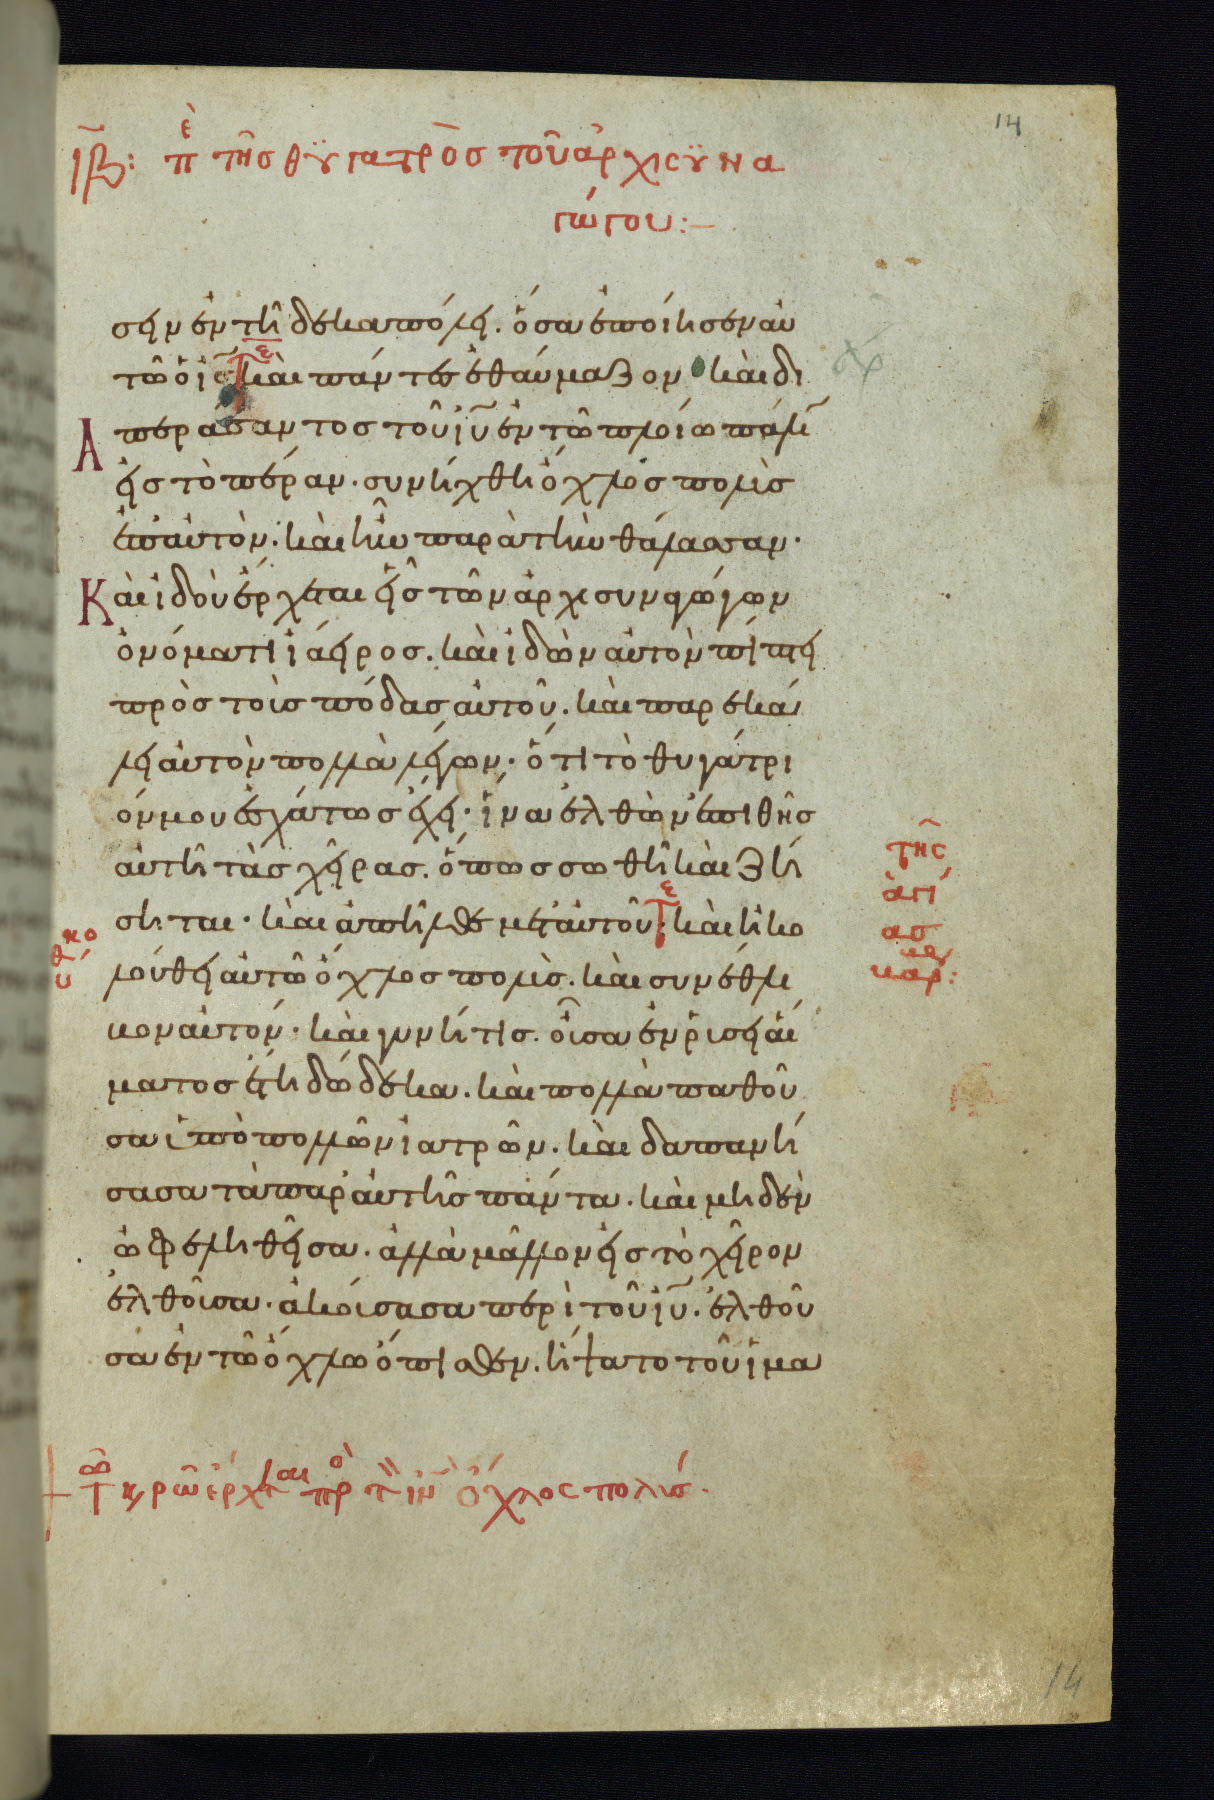 14
ιβ: πε τῆσ θϋγατρὸσ τοῦ ἀρχισϋνα
γώγου:–
σειν ἐν τῆ δεκαπόλει. ὅσα ἐποίησεν αὐ
τῶ ὁ ις καὶ πάντες ἐθαύμαζον καὶ δι
α περάσαντοσ τοῦ ιυ ἐν τῶ πλοίω πάλιν
εἰσ τὸ πέραν. συνήχθη ὄχλοσ πολὺσ
ἐπ αὐτὸν. καὶ ἦν παρὰ τὴν θάλασσαν.
Καὶ ἰδοὺ ἔρχεται εἷσ τῶν ἀρχισυναγώγων
ὀνόματι ἰάειροσ. καὶ ἰδὼν αὐτὸν πίπτει
πρὸσ τοὺσ πόδασ αὐτοῦ. καὶ παρεκά
λει αὐτὸν πολλὰ λέγων. ὅτι τὸ θυγάτρι
όν μου ἐσχάτωσ ἔχει. ἵνα ἐλθὼν ἐπιθῆσ
αὐτῆ τὰσ χεῖρασ. ὅπωσ σωθῆ καὶ ζή
σηται. καὶ ἀπῆλθε μετ αὐτοῦ. καὶ ἠκο
λούθει αὐτῶ ὄχλοσ πολὺσ. καὶ συνέθλι
βον αὐτόν. καὶ γυνή τισ. οὖσα ἐν ῥύσει αἵ
ματοσ ἔτη δώδεκα. καὶ πολλὰ παθοῦ
σα ὑπὸ πολλῶν ἰατρῶν. καὶ δαπανή
σασα τὰ παρ αὐτῆσ πάντα. καὶ μηδὲν
ὠφεληθεῖσα. ἀλλὰ μᾶλλον εἰσ τὸ χεῖρον
ἐλθοῦσα. ἀκούσασα περὶ τοῦ ιυ. ἐλθοῦ
σα ἐν τῶ ὄχλω ὄπισθεν. ἥψατο τοῦ ἱμα
τῆς
ἁγί
ασ
+ τω κρῶ ἔρχεται πρὸ τὸν ιν ὄχλος πολύσ.
14